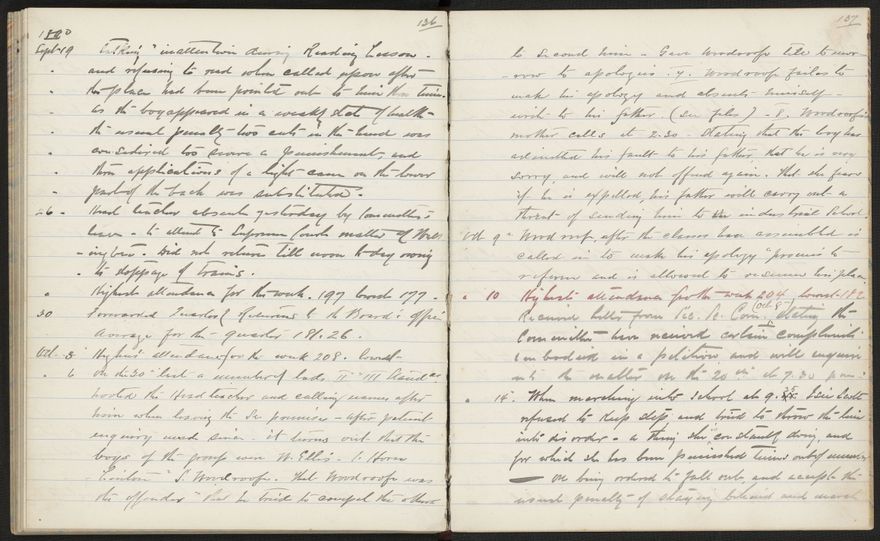 136
1890
Sept 19 Talking & inattention during Reading Lesson -
and refusing to read when called upon after
the place had been pointed out to him three times.
As the boy appeared in a weakly state of health -
the usual penalty two cuts in the hand was
considered too severe a punishment, and
three applications of a light cane on the lower
part of the back was substituted.
26 - Head teacher absent yesterday by Committee's
leave - to attend Supreme Court matter of
Did not return till noon to-day owing
to stoppage of trains.
" Highest attendance for the week. 197 lowest 177 -
30 Forwarded Quarterly Returns to the Board's office
Average for the quarter 181.26.
Oct. 3 Highest attendance for the week 208. lowest
" 6 On the 30th last a number of lads II & III Class
hooted the Head teacher and calling names after
him when leaving the Sc. premises - after patient
enquiry made since - it turns out that the
boys of the group were W. Ellis - Horn
& J. Woodroofe. That Woodroofe was
the offender & that he tried to compel the others
137
to second him - Gave Woodroofe till to-mor
-row to apologise. 7. Woodroofe fails to
make his apology and absents himself -
write to his father (see files) - 8. Woodroofe's
mother calls at 2.30 - stating that the boy has
admitted his fault to his father, that he is very
sorry and will not offend again. That she fears
if he is expelled, his father will carry out a
threat of sending him to the industrial School.
Oct 9th Woodroofe, after the classes have assembled is
called in to make his apology & promises to
reform and is allowed to resume his place
" 10 Highest attendance for the week 204, lowest 182
Received letter from Sc. Com. (Oct 8th) stating the
Committee have received certain complaints
embodied in a petition and will enquire
into the matter on the 20th at 7.30 p.m.
" 14. When marching into School at 9.35
refused to keep step, and tried to throw the line
into disorder - a thing she is constantly doing, and
for which she has been punished times out of number
— On being ordered to fall out and accept the
usual penalty of staying behind and march